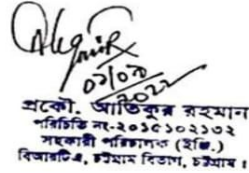 ০১/০৯
২০২২
প্রকৌ. আতিকুর রহমান
পরিচিতি নং-২০১৫১০২১৩২
সহকারী পরিচালক (ইঞ্জি.)
বিআরটিএ, চট্টগ্রাম বিভাগ, চট্টগ্রাম।